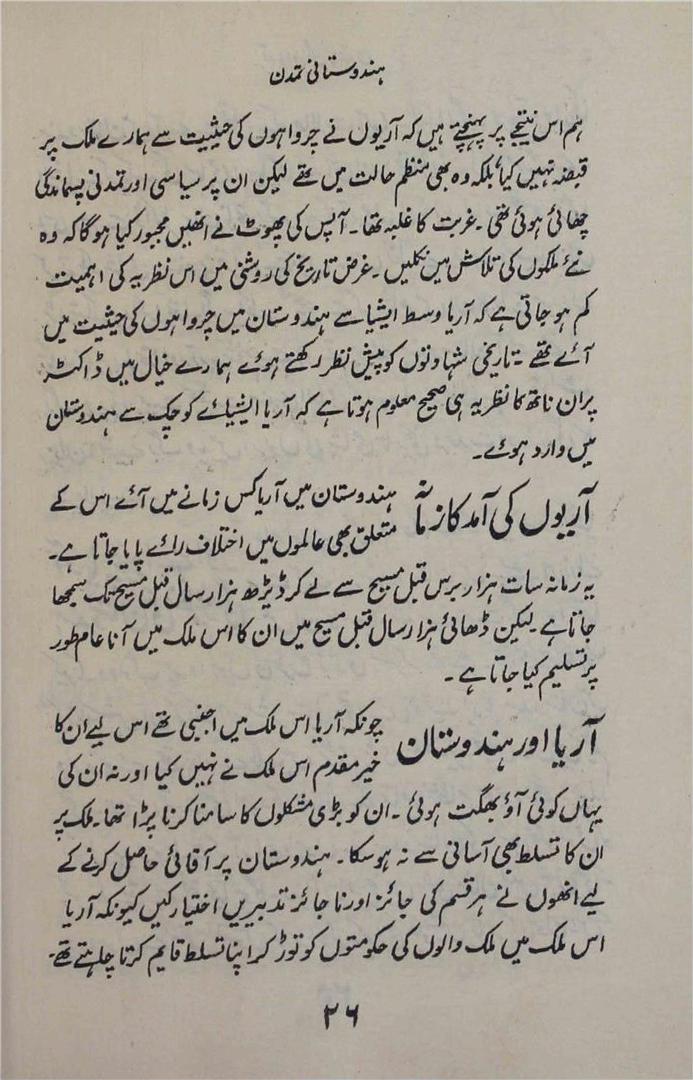 ہندوستانی تمدن
ہم اس نتیجے پر پہنچتے ہیں کہ آریوں نے چرواہوں کی حیثیت سے ہمارے ملک پر
قبضہ نہیں کیا، بلکہ وہ بھی منظم حالت میں تھے لیکن ان پر سیاسی اور تمدنی پسماندگی
چھائی ہوئی تھی ۔ غربت کا غلبہ تھا۔ آپس کی پھوٹ نے انھیں مجبور کیا ہوگا کہ وہ
نئے ملکوں کی تلاش میں نکلیں ۔ غرض تاریخ کی روشنی میں اس نظریہ کی اہمیت
کم ہو جاتی ہے کہ آریا وسط ایشیا سے ہندوستان میں چرواہوں کی حیثیت میں
آئے تھے ۔ تاریخی شہادتوں کو پیش نظر رکھتے ہوئے ہمارے خیال میں ڈاکٹر
پران ناتھ کا نظریہ ہی صحیح معلوم ہوتا ہے کہ آریا ایشیائے کوچک سے ہندوستان
میں وارد ہوئے۔
آریوں کی آمد کا زمانہ
ہندوستان میں آریا کس زمانے میں آئے اس کے
متعلق بھی عالموں میں اختلاف رائے پایا جاتا ہے۔
یہ زمانہ سات ہزار برس قبل مسیح سے لے کر ڈیڑھ ہزار سال قبل مسیح تک سمجھا
جاتا ہے لیکن ڈھائی ہزار سال قبل مسیح میں ان کا اس ملک میں آنا عام طور
پر تسلیم کیا جاتا ہے ۔
آریا اور ہندوستان
چونکہ آریا اس ملک میں اجنبی تھے اس لیے ان کا
خیر مقدم اس ملک نے نہیں کیا اور نہ ان کی
یہاں کوئی آؤ بھگت ہوئی ۔ ان کو بڑی مشکلوں کا سامنا کرنا پڑا تھا۔ ملک پر
ان کا تسلط بھی آسانی سے نہ ہو سکا۔ ہندوستان پر آقائی حاصل کرنے کے
لیے انھوں نے ہر قسم کی جائز اور ناجائز تدبیریں اختیار کیں کیونکہ آریا
اس ملک میں ملک والوں کی حکومتوں کو توڑ کر اپنا تسلط قایم کرنا چاہتے تھے۔
۲۶